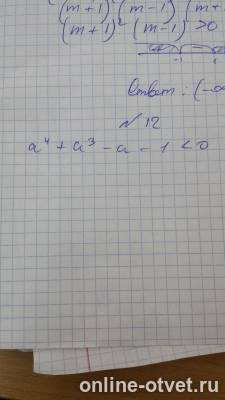 (m+1)²(m-1)(m+
(m+1)²(m-1) > 0
-1
Ответ: (-∞
№12
a⁴ + a³ - a - 1 < 0
online-otvet.ru